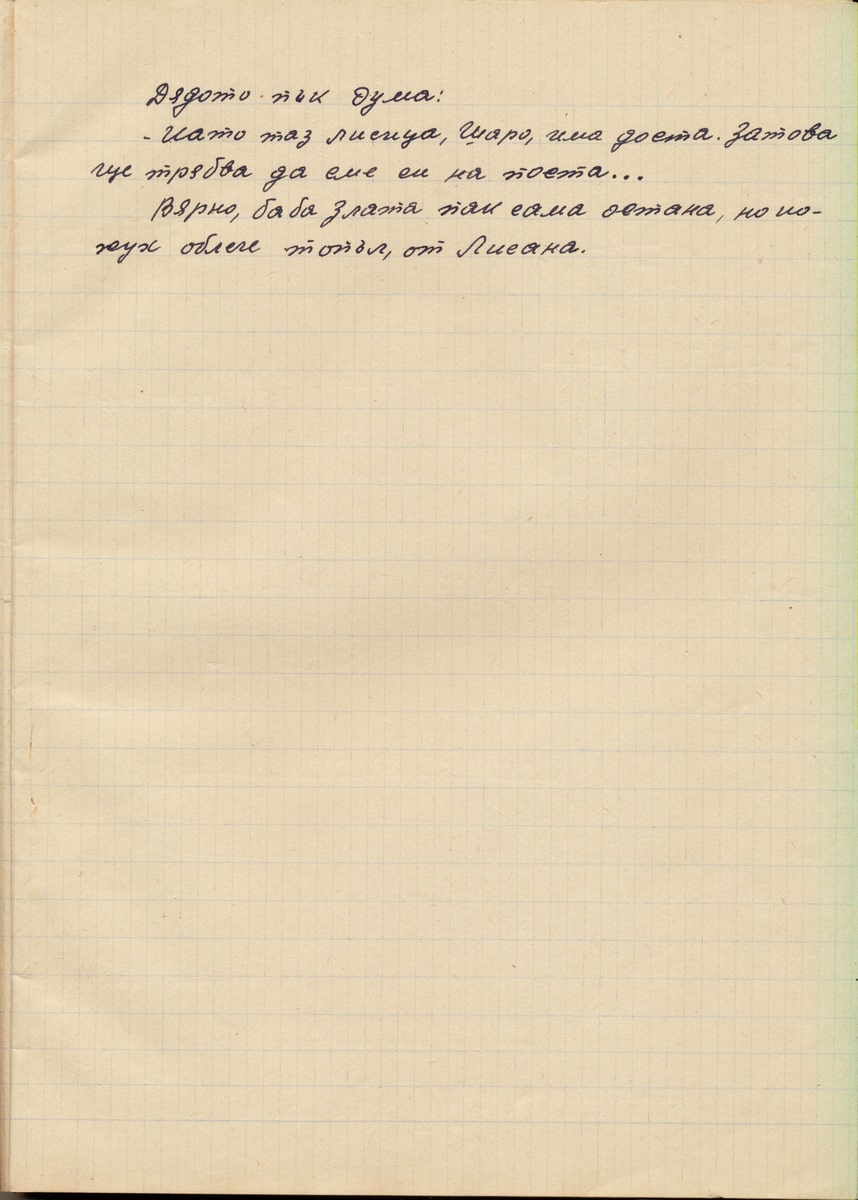 Дядото пък дума:
- Като таз лисица, Шаро, има доста. Затова
ще трябва да сме си на поста...
Вярно, баба Злата пак сама остана, но ко-
жух облече топъл, от Лисана.